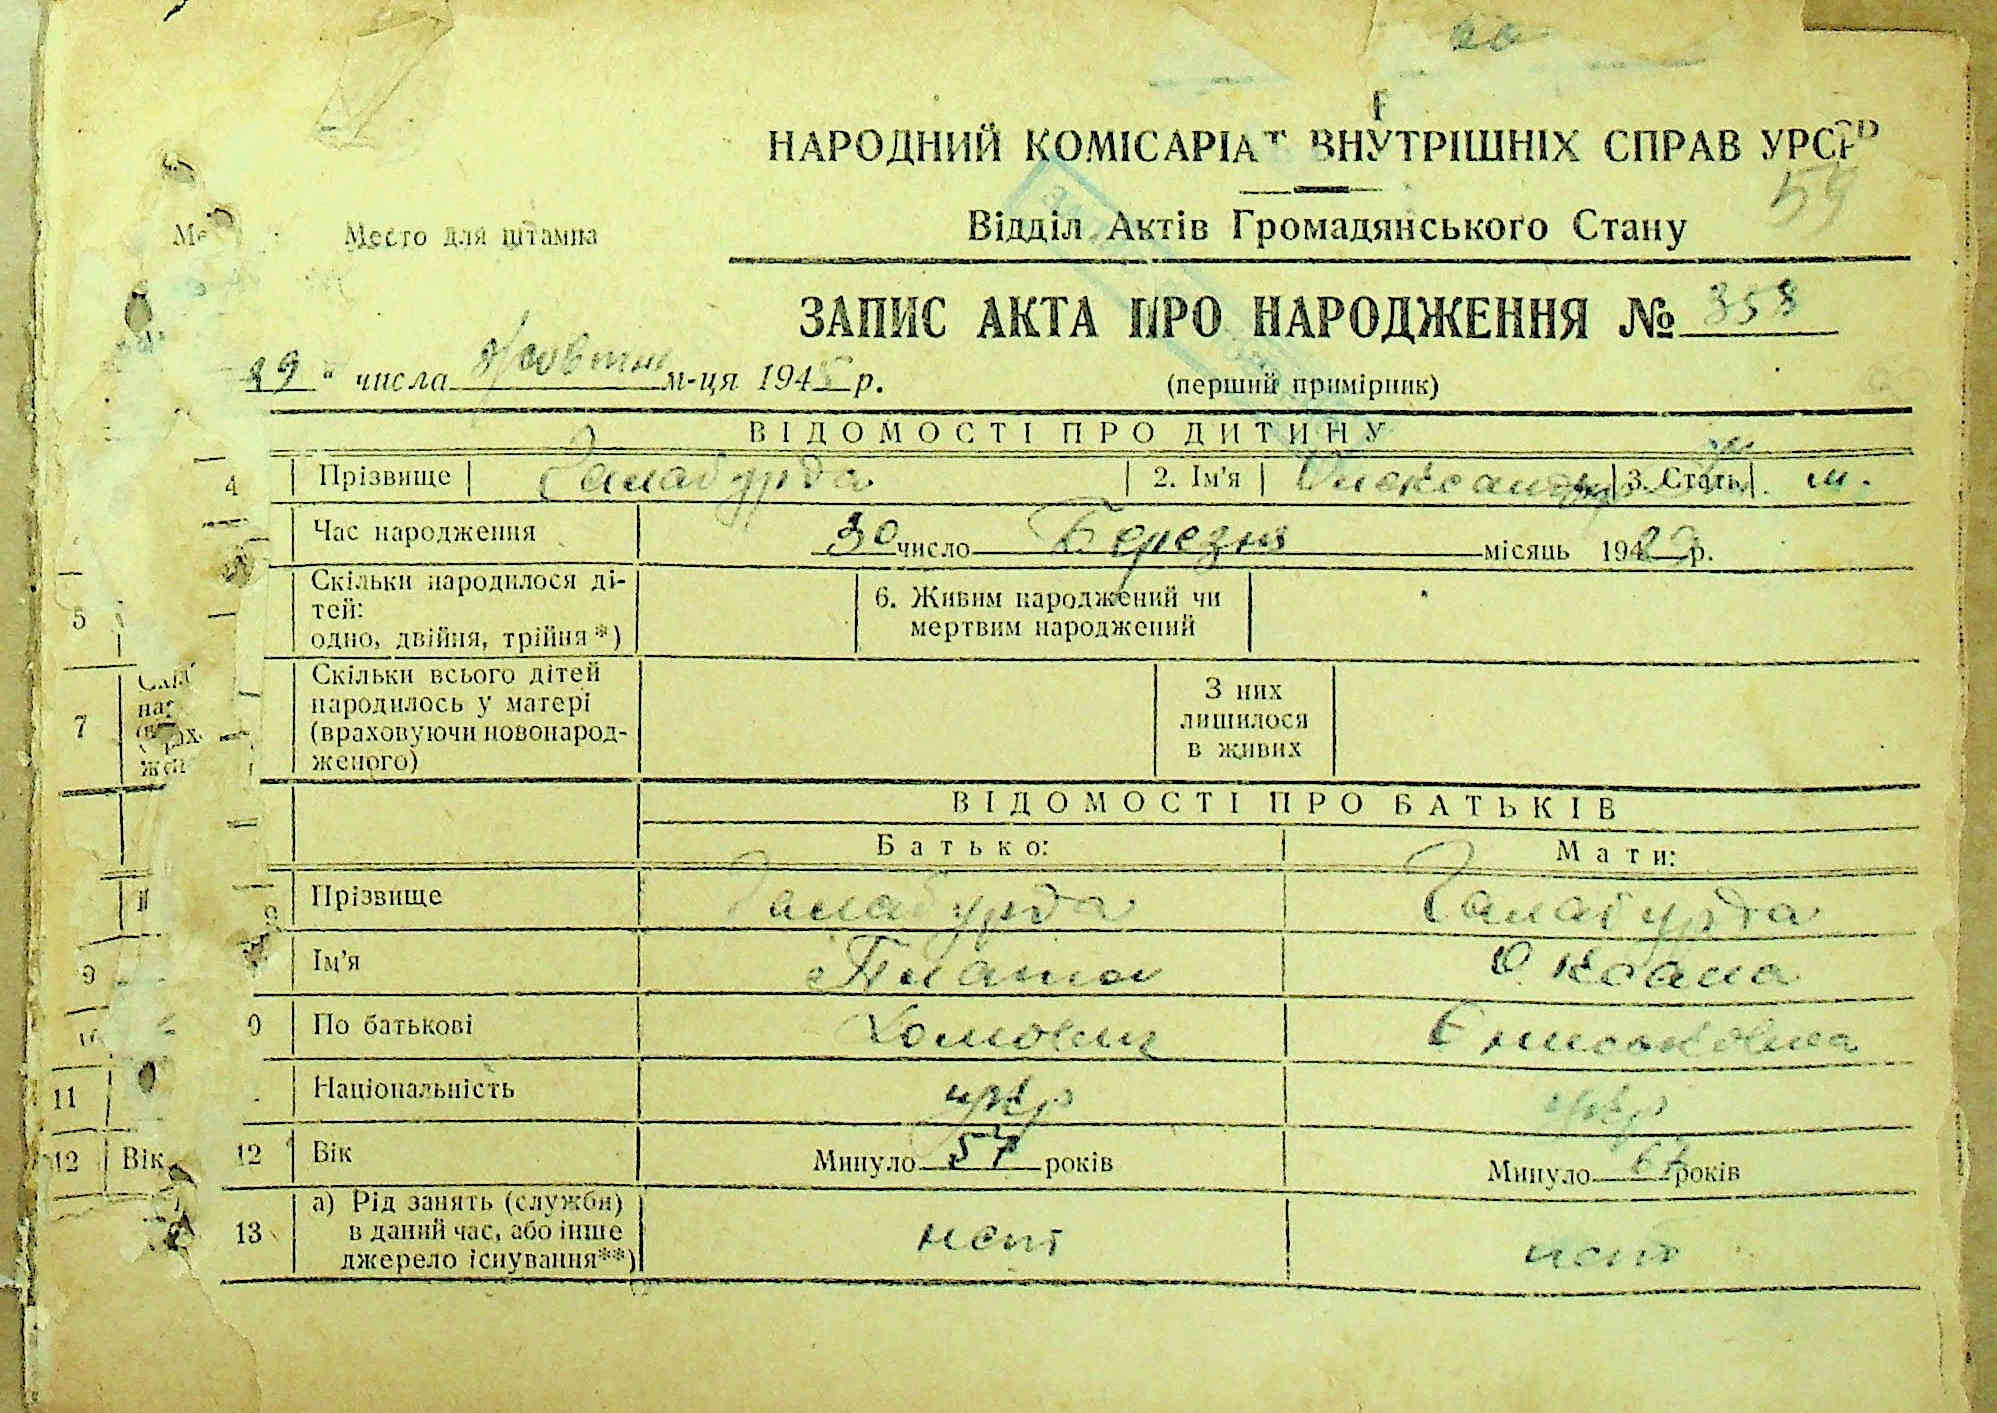 НАРОДНИЙ КОМІСАРІАТ ВНУТРІШНІХ СПРАВ УРСР
54
Место для штампа
Відділ Актів Громадянського Стану
ЗАПИС АКТА ПРО НАРОДЖЕННЯ № 358
29 числа жовтня м-ця 1945 р.
(перший примірник)
ВІДОМОСТІ ПРО ДИТИНУ
4 Прізвище Галабурда 2. Ім'я Олександр 3. Стать
Час народження 30 число Березня місяць 19 р.
5 Скільки народилося ді-
тей:
одно, двійня, трійня*)
6. Живим народжений чи
мертвим народжений
7 Скільки всього дітей
народилось у матері
(враховуючи новонарод-
женого)
З них
лишилося
в живих
ВІДОМОСТІ ПРО БАТЬКІВ
Батько: Мати:
Прізвище Галабурда Галабурда
9 Ім'я Платон Оксана
По батькові Хомович
11 Національність укр укр
12 Вік 12 Вік Минуло 57 років Минуло років
13 а) Рід занять (служби)
в даний час, або інше
джерело існування**)
нет нет